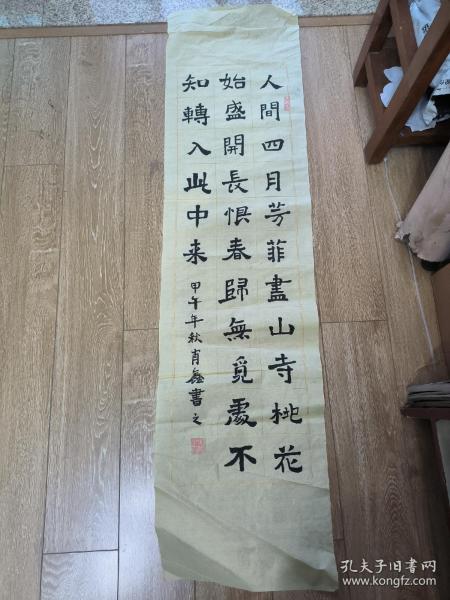 人間四月芳菲盡山寺桃花
始盛開長惧春歸無覓處不
知轉入此中来
甲午年秋肖鑫書之
孔夫子旧书网
www.kongfz.com